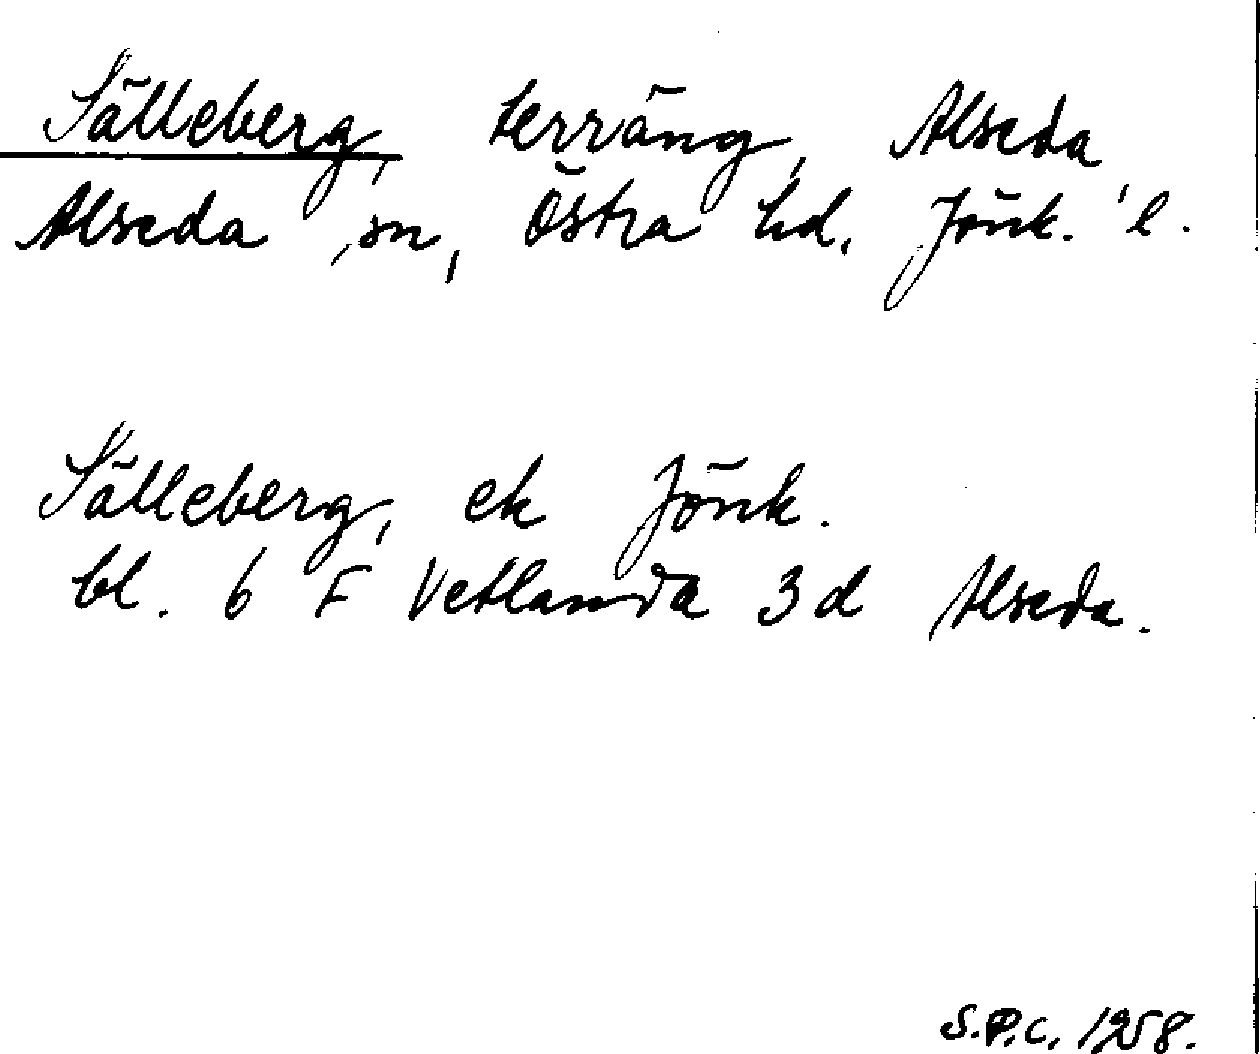 Sälleberg, terräng, Alseda
Alseda sn, Östra hd. Jönk. l.
Sälleberg, ek Jönk.
bl. 6 F Vetlanda 3d Alseda.
S.P.C. 1958.